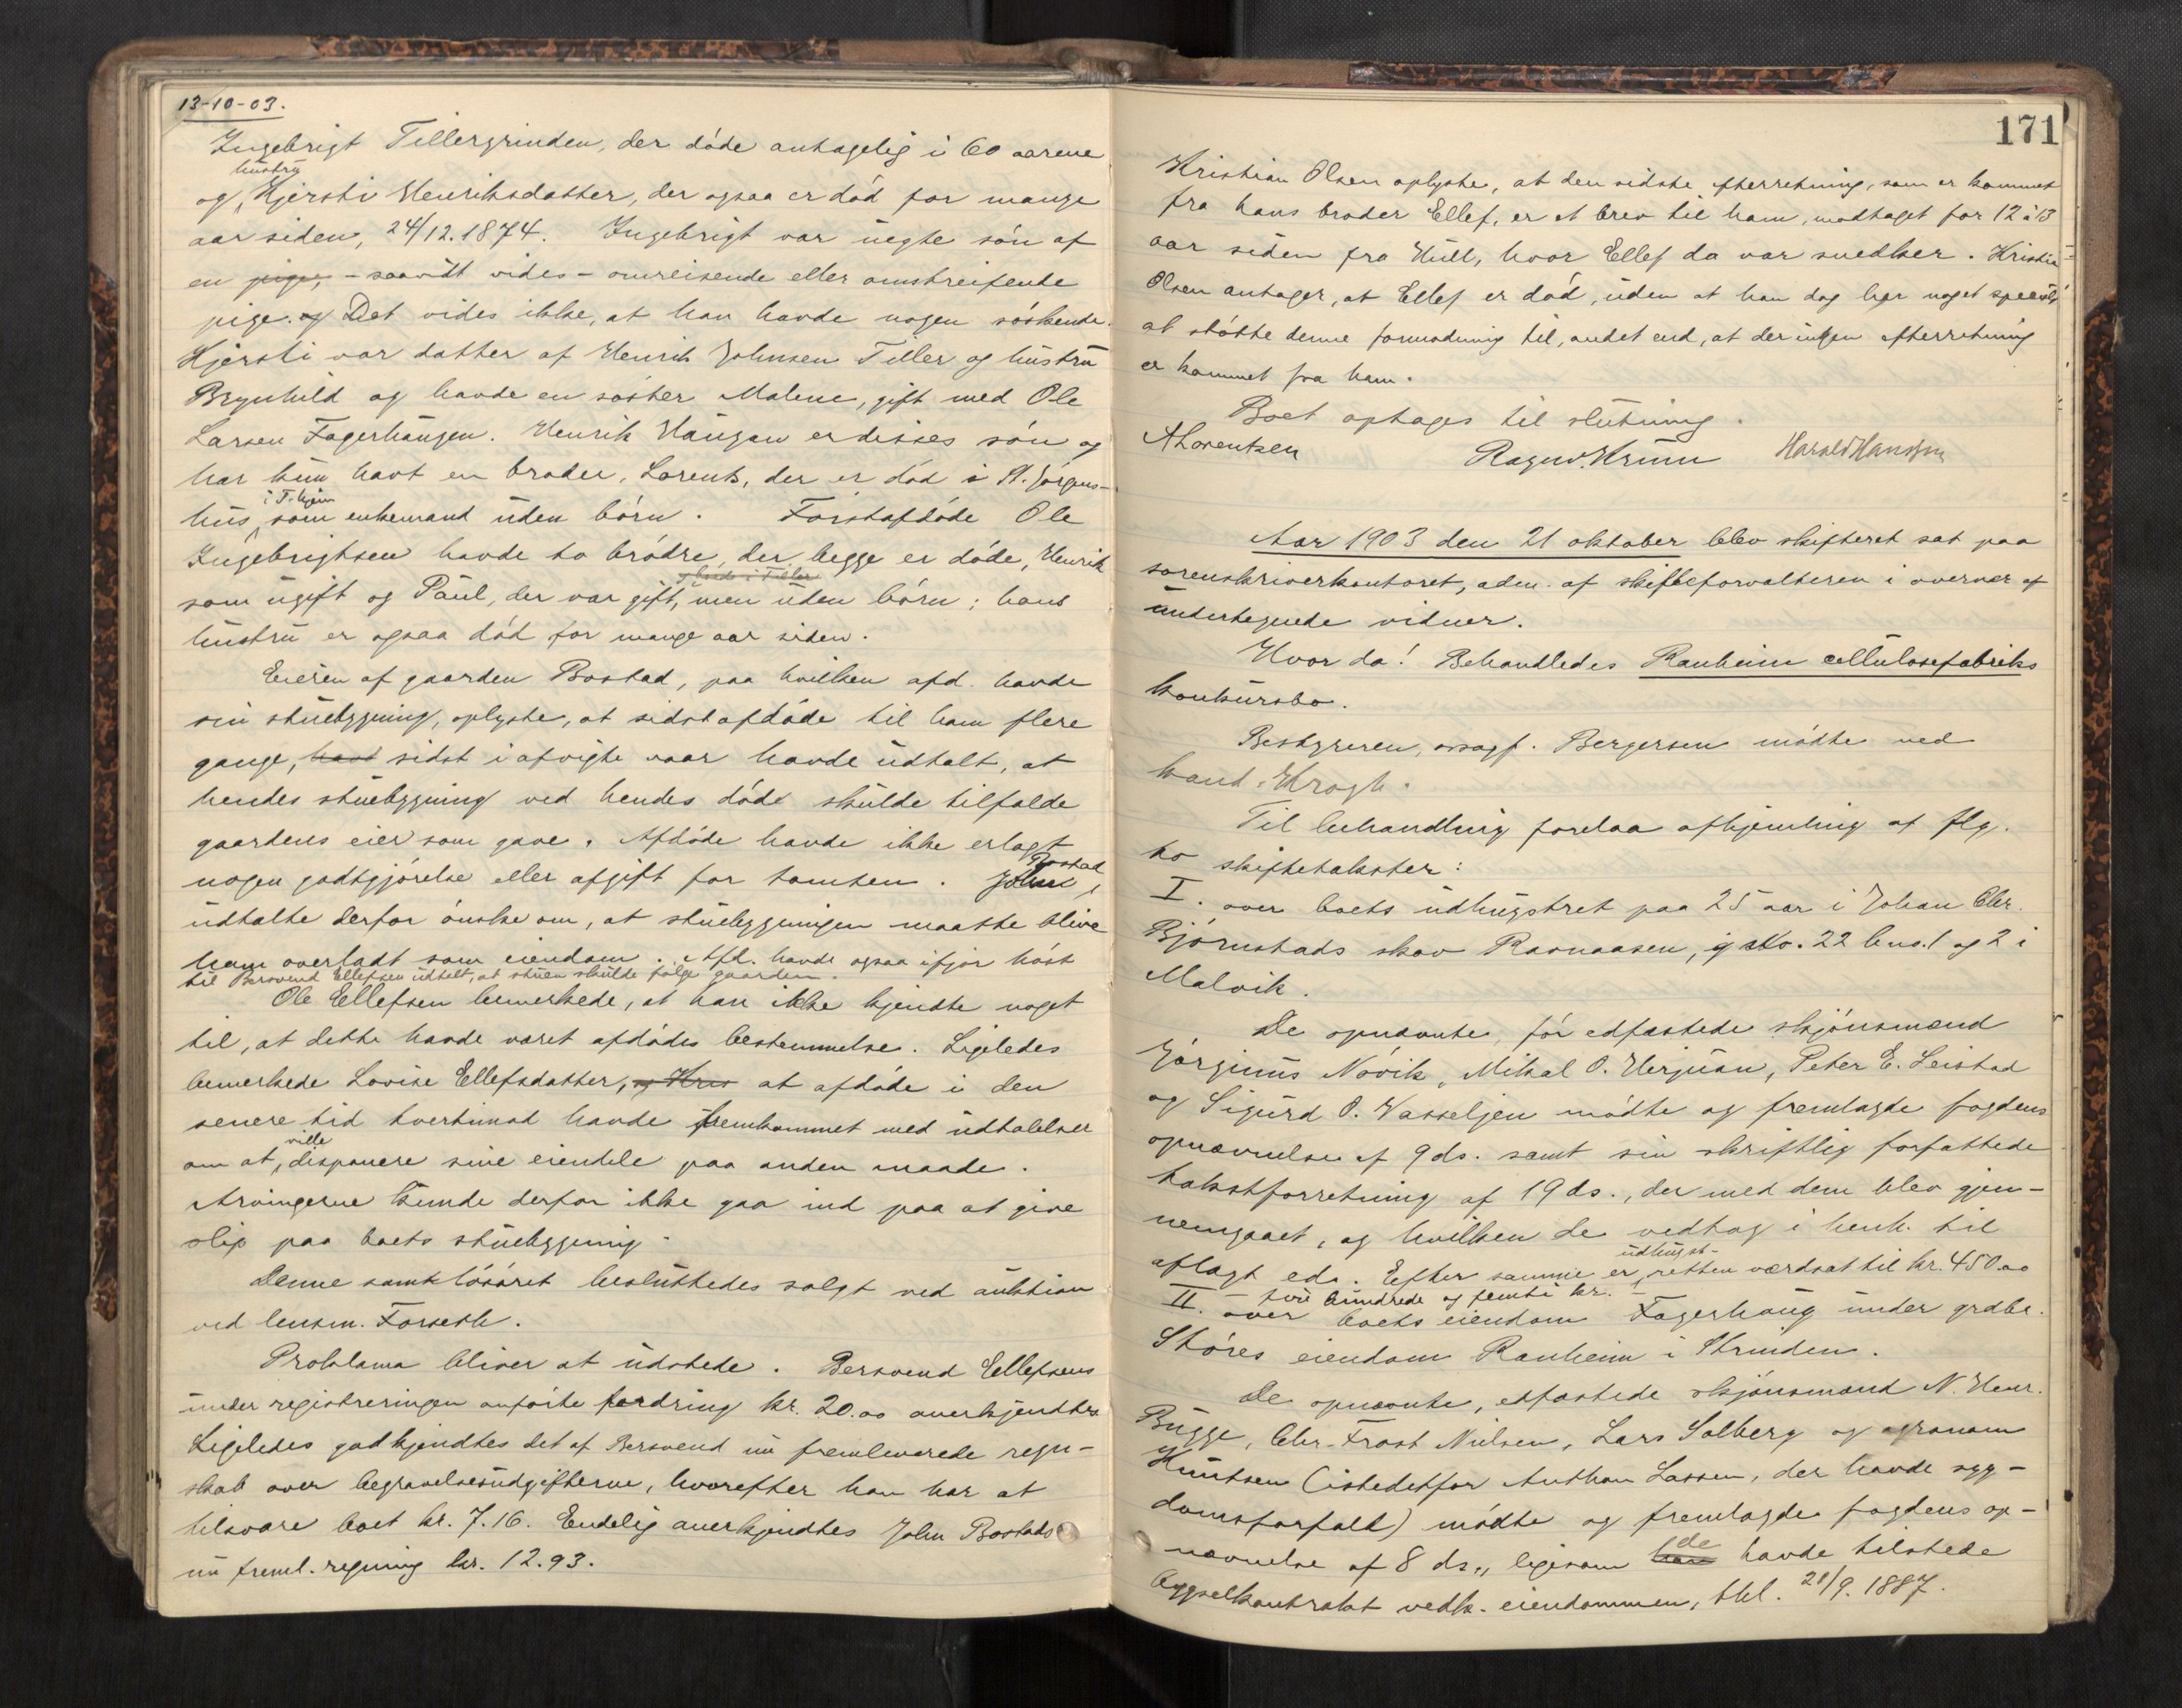 13-10-03.
Ingebrigt Tillergrinden, der døde antagelig i 60 aarene
hustru
og Kjersti Henriksdatter, der ogsaa er død for mange
aar siden, 24/12.1874. Ingebrigt var uegte søn af
en pige, - saavidt vides - omreisende eller omstreifende
pige. og Det vides ikke, at han havde nogen søskende.
Kjersti var datter af Henrik Johnsen Tiller og hustru
Brynhild og havde en søster Malene, gift med Ole
Larsen Fagerhaugen. Henrik Haugan er disses søn og
har kun havt en broder, Lorents, der er død i St. Jørgens-
i T.hjem
hus, som enkemand uden børn. Førstafdøde Ole
Ingebrigtsen havde to brødre, der begge er døde, Henrik
som ugift og Paul, der var gift, men uden børn; hans
hustru er ogsaa død for mange aar siden.
Eieren af gaarden Rostad, paa hvilken afd. havde
sin stuebygning, oplyste, at sidstafdøde til ham flere
gange, havd sidst i afvigte vaar havde udtalt, at
hendes stuebygning ved hendes død skulde tilfalde
gaardens eier som gave. Afdøde havde ikke erlagt
nogen godtgjørelse eller afgift for tomten. John Rostad
udtalte derfor ønske om, at stuebygningen maatte blive
ham overladt som eiendom. Afd. havde ogsaa ifjor høst
til Bersvend Ellefsen udtalt, at stuen skulde følge gaarden.
Ole Ellefsen bemerkede, at han ikke kjendte noget
til, at dette havde været afdødes bestemmelse. Ligeledes
bemerkede Lovise Ellefsdatter, og Kris at afdøde i den
senere tid tvertimod havde fremkommet med udtalelser
ville
om at disponere sine eiendele paa anden maade.
Arvingerne kunde derfor ikke gaa ind paa at give
slip paa boets stuebygning.
Denne samt løsøret besluttedes solgt ved auktion
ved lensm. Forseth.
Proklama bliver at udstede. Bersvend Ellefsens
under registreringen anførte fordring kr. 20.00 anerkjendtes.
Ligeledes godkjendtes det af Bersvend nu fremleverede regn-
skab over begravelsesudgifterne, hvorefter han har at
tilsvare boet kr. 7.16. Endelig anerkjendtes John Rostads
nu freml. regning kr. 12.93.
171
Kristian Olsen oplyste, at den sidste efterretning, som er kommet
fra hans broder Ellef, er et brev til ham, modtaget for 12 à 13
aar siden fra Hull, hvor Ellef da var snedker. Kristian
Olsen antager, at Ellef er død, uden at han dog har noget specielt
at støtte denne formodning til, andet end, at der ingen efterretning
er kommet fra ham.
Boet optages til slutning.
A Lorentzen Ragnv. Krum Harald Hansen
Aar 1903 den 21 oktober blev skifteret sat paa
sorenskriverkontoret, adm. af skifteforvalteren i overvær af
undertegnede vidner.
Hvor da! Behandledes Ranheim cellulosefabriks
konkursbo.
Bestyreren, ovsagf. Bergersen mødte ved
kand. Krogh.
Til behandling forelaa afhjemling af flg.
to skiftetakster:
I. over boets udhugstret paa 25 aar i Johan Chr.
Bjørnstads skov Ravnaasen, g no. 22 bno. 1 og 2 i
Malvik.
De opnævnte, før edfæstede skjønsmænd
Jørginus Nøvik, Mikal O. Herjuan, Peter E. Leistad
og Sigurd O. Vasseljen mødte og fremlagde fogdens
opnævnelse af 9 ds. samt sin skriftlig forfattede
takstforretning af 19 ds., der med dem blev gjen-
nemgaaet, og hvilken de vedtog i henh. til
udhugst-
aflagt ed. Efter samme er retten værdsat til kr. 450.00
- fire hundrede og femti kr. -
II. over boets eiendom Fagerhaug under grdbr.
Støres eiendom Ranheim i Strinden.
De opnævnte, edfæstede skjønsmænd N. Henr.
Bugge, Chr. Frost Nielsen, Lars Solberg og agronom
Knutsen (istedetfor Anthon Lassen, der havde syg-
domsforfald) mødte og fremlagde fogdens op-
de
nævnelse af 8 ds., ligesom han havde tilstede
bygselkontrakt vedk. eiendommen, thl. 21/9. 1887.